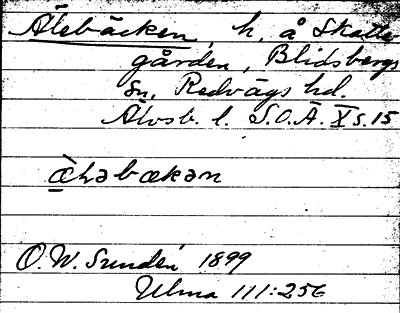 Älebäcken, h. å Skatte
gården, Blidsbergs
sn, Redvägs hd.
Älvsb. l. S.O.Ä. X s. 15
O.W. Sundén 1899
Ulma 111:256